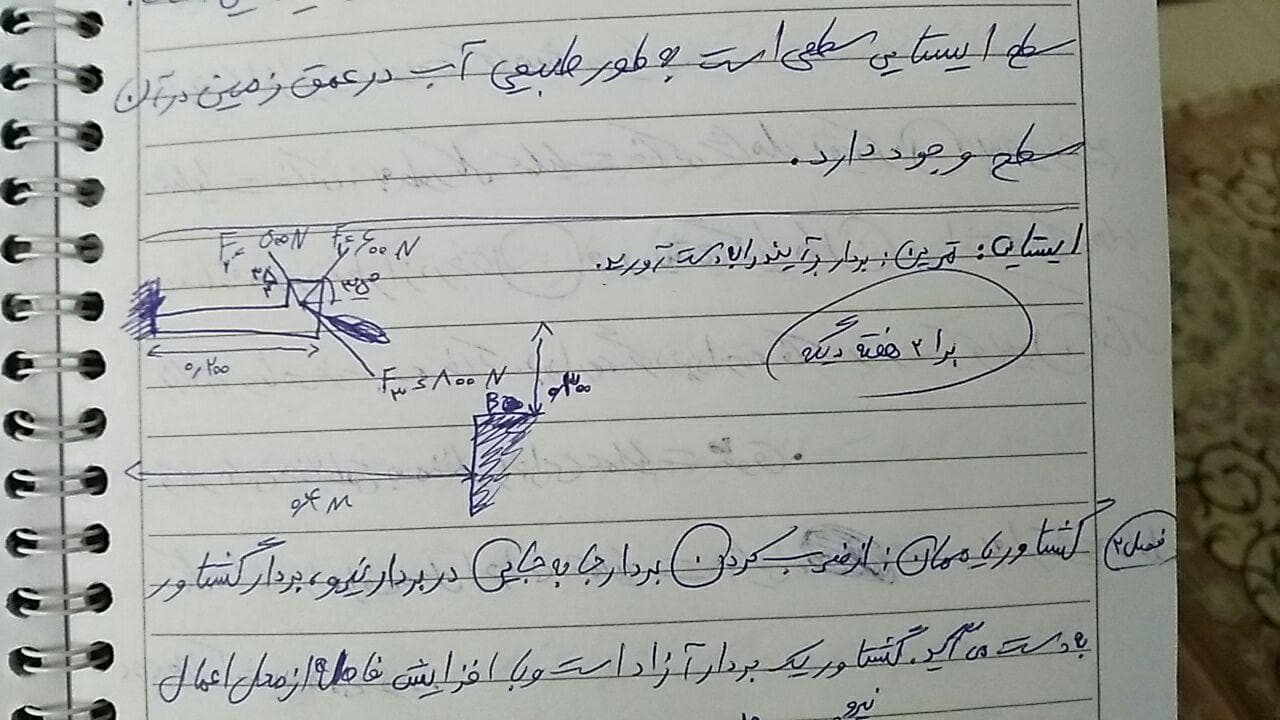 سطح ایستایی سطحی است به طور طبیعی آب در عمق زمین در آن
سطح وجود دارد.
ایستایی: تمرین: بردار برآیند را بدست آورید.
F₂ = ۵۰۰ N
F₁ = ۶۰۰ N
برا ۲ هفته دیگه
۰٫۲۰۰
F₃ = ۸۰۰ N
B
۰٫۳۰۰
۰٫۴ M
فصل ۲
گشتاور یا ممان: از ضرب کردن بردار جا به جایی در بردار نیرو، بردار گشتاور
به دست می آید. گشتاور یک بردار آزاد است و با افزایش فاصله از محل اعمال
نیرو